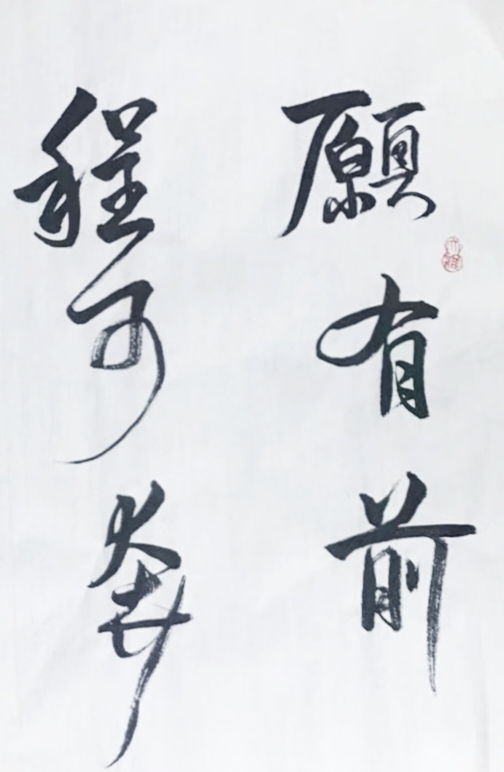 願有前
程可奔